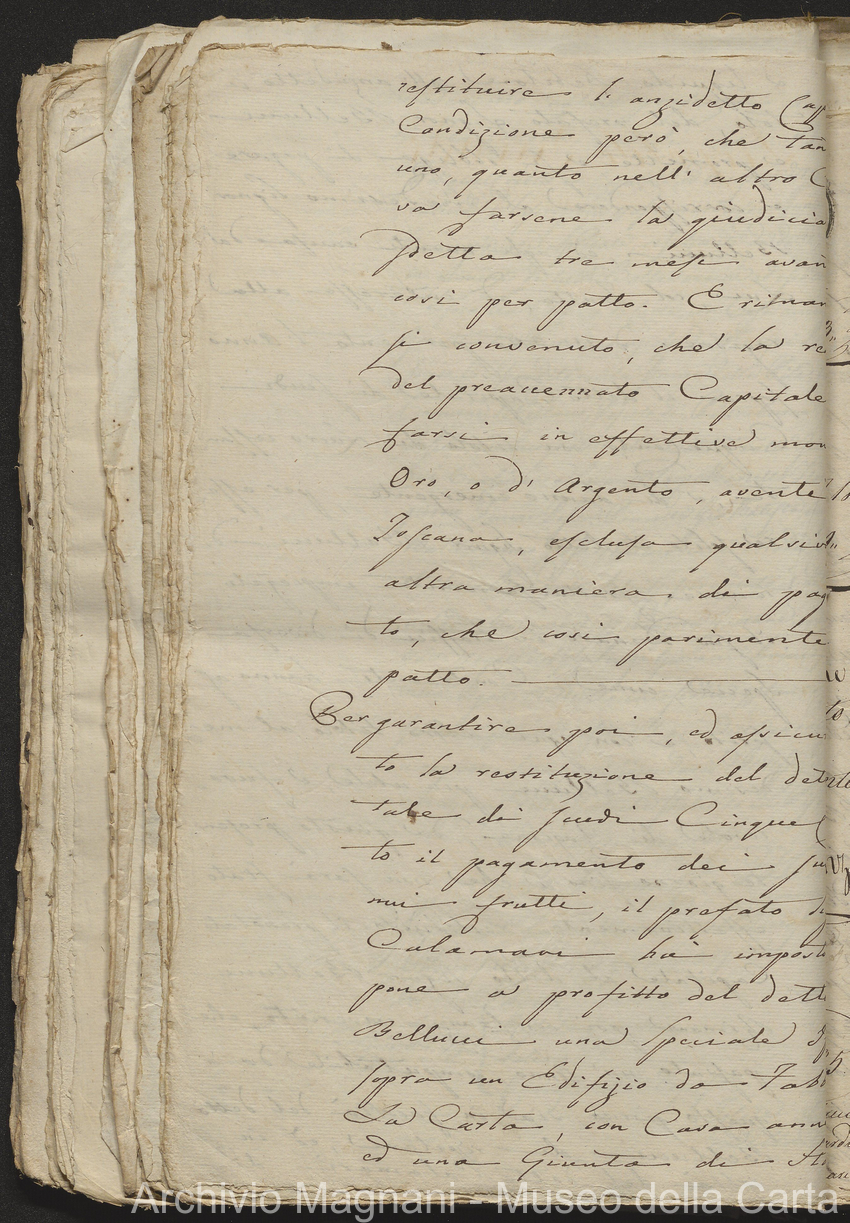 restituire l'anzidetto Capp
Condizione però, che tan
uno, quanto nell'altro C
va farsene la giudicia
sdetta tre mesi avan
così per patto. E riman
si convenuto, che la re
del preaccennato Capitale
farsi in effettive mon
Oro, o d'Argento, avente
Toscana, esclusa qualsiv
altra maniera di pag
to, che così parimente
patto.
Per garantire poi, ed assicu
to la restituzione del det
tale di scudi Cinque
to il pagamento dei su
mi frutti, il prefato
Calamari hà imposto
pone a profitto del dett
Bellucci una speciale
sopra un Edifizio da Fab
La Carta, con Casa ann
ed una Giunta di
Archivio Magnani - Museo della Carta